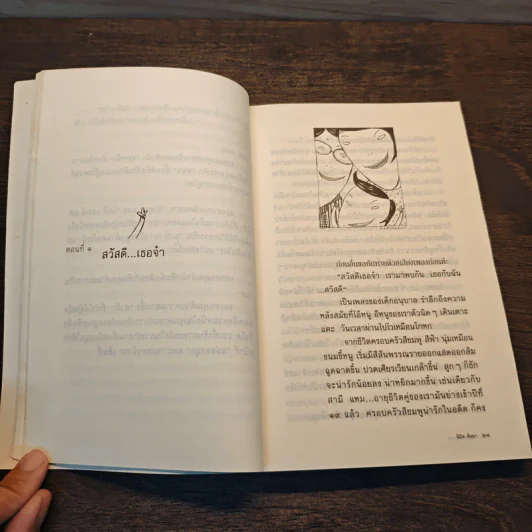 ตอนที่ ๑
สวัสดี...เธอจ๋า
"สวัสดีเธอจ๋า เรามาพบกัน เธอกับฉัน
...สวัสดี"
เป็นเพลงของเด็กอนุบาล รำลึกถึงความ
หลังสมัยที่ไอ้หนู อีหนูของเราตัวนิด ๆ เดินเตาะ
แตะ วันเวลาผ่านไปไวเหมือนโกหก
จากชีวิตครอบครัวสีชมพู สีฟ้า นุ่มเหมือน
ขนมขี้หนู เริ่มมีสีสันพรรณรายออกแสดออกส้ม
ฉูดฉาดขึ้น ปวดเศียรเวียนเกล้าขึ้น ลูก ๆ ก็ชัก
จะน่ารักน้อยลง น่าหยิกมากขึ้น เช่นเดียวกับ
สามี แหม...อายุชีวิตคู่ของเรามันย่างเข้าปีที่
แล้ว ครอบครัวสีชมพูน่ารักในอดีต ก็คง